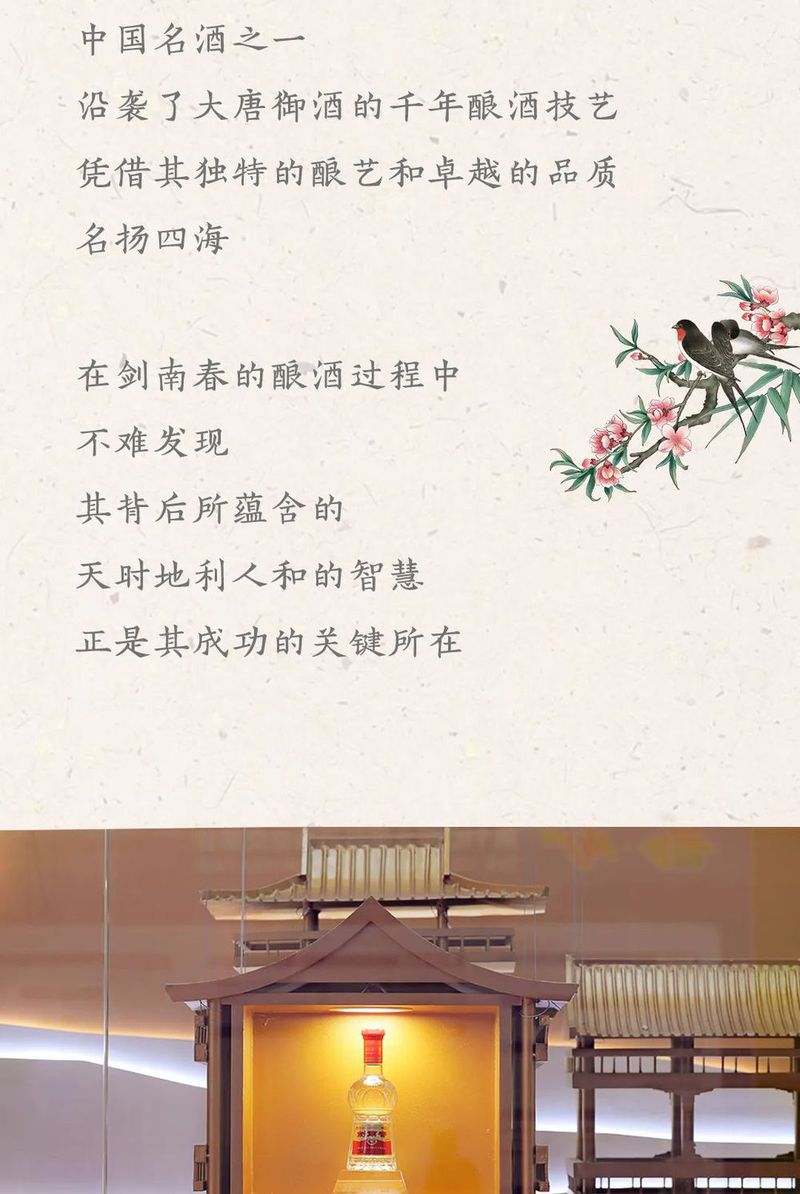 中国名酒之一
沿袭了大唐御酒的千年酿酒技艺
凭借其独特的酿艺和卓越的品质
名扬四海
在剑南春的酿酒过程中
不难发现
其背后所蕴含的
天时地利人和的智慧
正是其成功的关键所在
剑南春